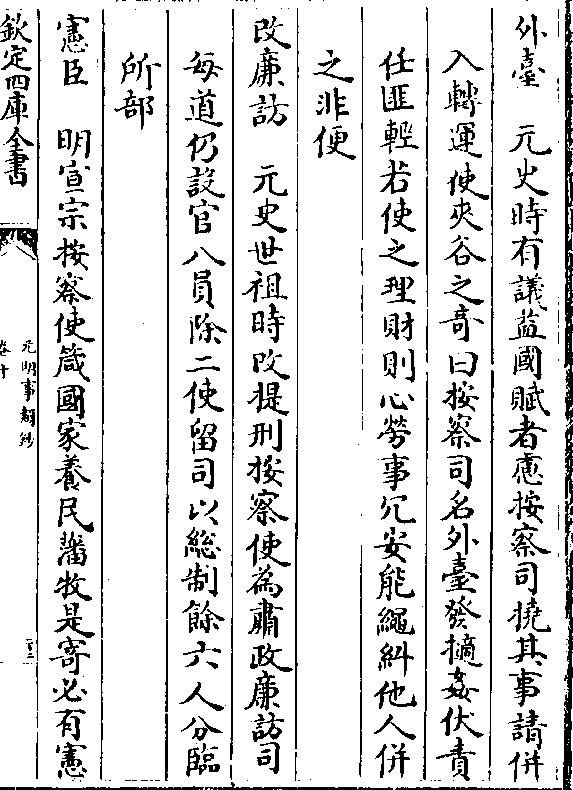 外臺　元史時有議益國賦者慮按察司撓其事請併
入轉運使夾谷之奇曰按察司名外臺發擿姦伏責
任匪輕若使之理財則心勞事冗安能繩糾他人併
之非便
改廉訪　元史世祖時改提刑按察使為肅政廉訪司
每道仍設官八員除二使留司以總制餘六人分臨
所部
憲臣　明宣宗按察使箴國家養民藩牧是寄必有憲
欽定四庫全書
元明事類鈔
卷十